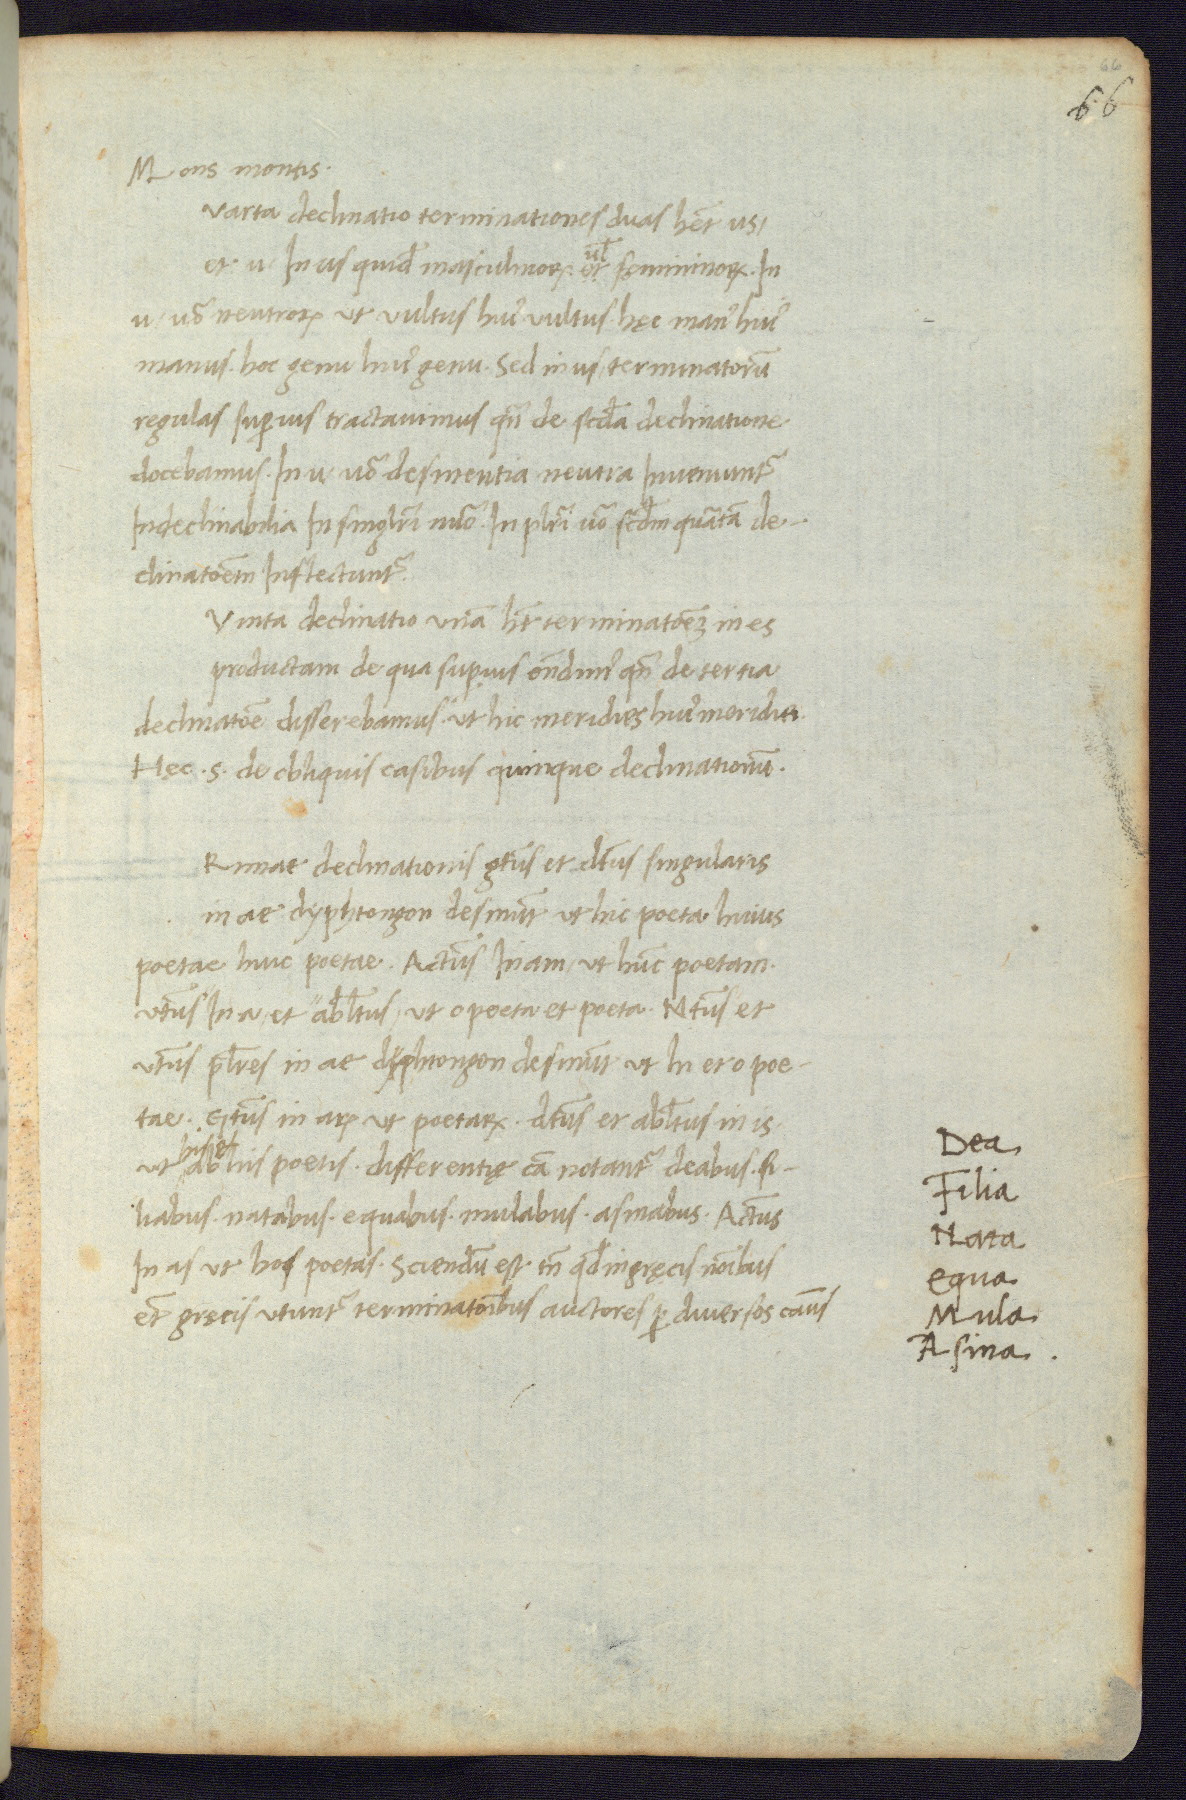 66
66
Mons montis.
varta declinatio terminationes duas hēt us,
et u. In us quidē masculinoꝝ ul̄ et fęmininoꝝ. In
u, uō neutroꝝ ut vultus huiꝰ vultus. hęc manꝰ huiꝰ
manus. hoc genu huiꝰ genu. Sed in us, terminatorū
regulas suꝑius tractauimus qn̄ de scd̄a declinatione
docebamus. In u, uō desinentia neutra Inueniuntᷣ
Indeclinabilia In singlr̄i nūo. In plr̄i uō scd̄m quartā de-
clinatōem Inflectuntᷣ.
Vinta declinatio vnā hēt terminatōeꝫ in es
productam de qua suꝑius ond̄imꝰ qn̄ de tertia
declinatōe disserebamus. ut hic meridies huiꝰ meridiei.
Hęc .s. de obliquis casibus quinque declinationū.
Rimae declinationis gt̄us et dt̄us singularis
in ae dyphtongon desinūt ut hic poeta huius
poetae huic poetae. Act̄us In am, ut hūc poetam.
vt̄us In a, et abl̄tus, ut o poeta et poeta. Nt̄us et
vt̄us pl̄res in ae dyphtongon desinūt ut hi et o poe-
tae. Gt̄us in aꝝ ut poetaꝝ. dt̄us et abl̄tus in is,
ut his et ab his poetis. differentię cā notantᷣ deabus. fi-
liabus. natabus. equabus. mulabus. asinabus. Act̄us
In as ut hos poetas. Sciendū est tn̄ qd̄ in gręcis noībus
et̄ gręcis utuntᷣ terminatōibus auctores ꝑ diuersos cāus
Dea
Filia
Nata
equa
Mula
Asina.